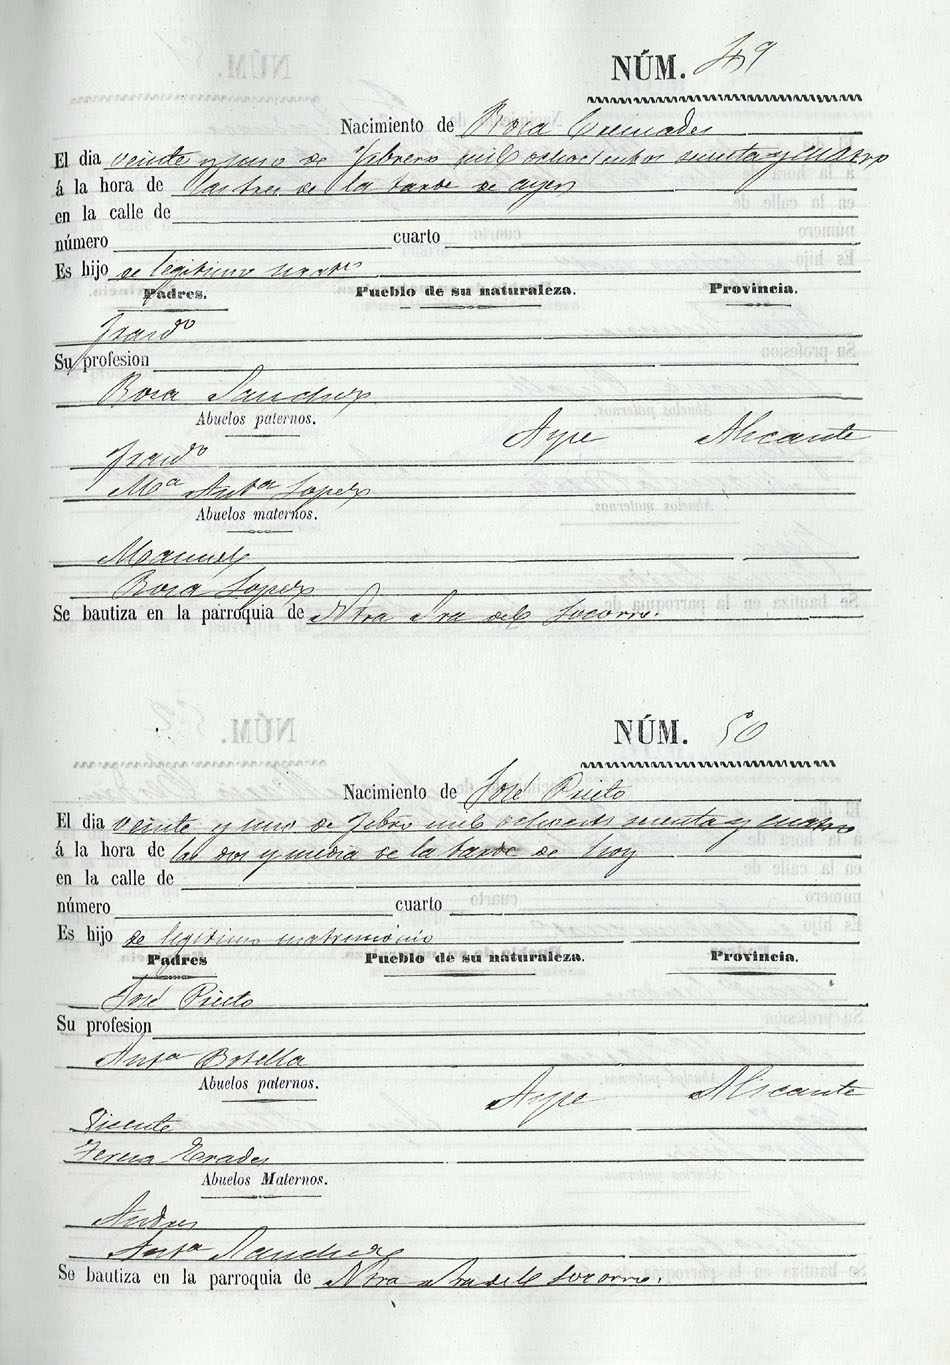 NÚM. 49
Nacimiento de Rosa Cremades
El dia veinte y uno de Febrero mil ochocientos secenta y cuatro
á la hora de las tres de la tarde de ayer
en la calle de
número cuarto
Es hijo de legitimo
Padres. Pueblo de su naturaleza. Provincia.
Franco
Su profesion
Rosa Sanchez
Abuelos paternos.
Aspe Alicante
Franco
Ma Anta Lopez
Abuelos maternos.
Manuel
Rosa Lopez
Se bautiza en la parroquia de Ntra Sra del Socorro.
NÚM. 50
Nacimiento de José Prieto
El dia veinte y uno de Febro mil ochocts secenta y cuatro
á la hora de las dos y media de la tarde de hoy
en la calle de
número cuarto
Es hijo de legitimo matrimonio
Padres Pueblo de su naturaleza. Provincia.
José Prieto
Su profesion
Anta Botella
Abuelos paternos.
Aspe Alicante
Vicente
Teresa Erades
Abuelos Maternos.
Andres
Anta Sanchez
Se bautiza en la parroquia de Ntra Sra del Socorro.